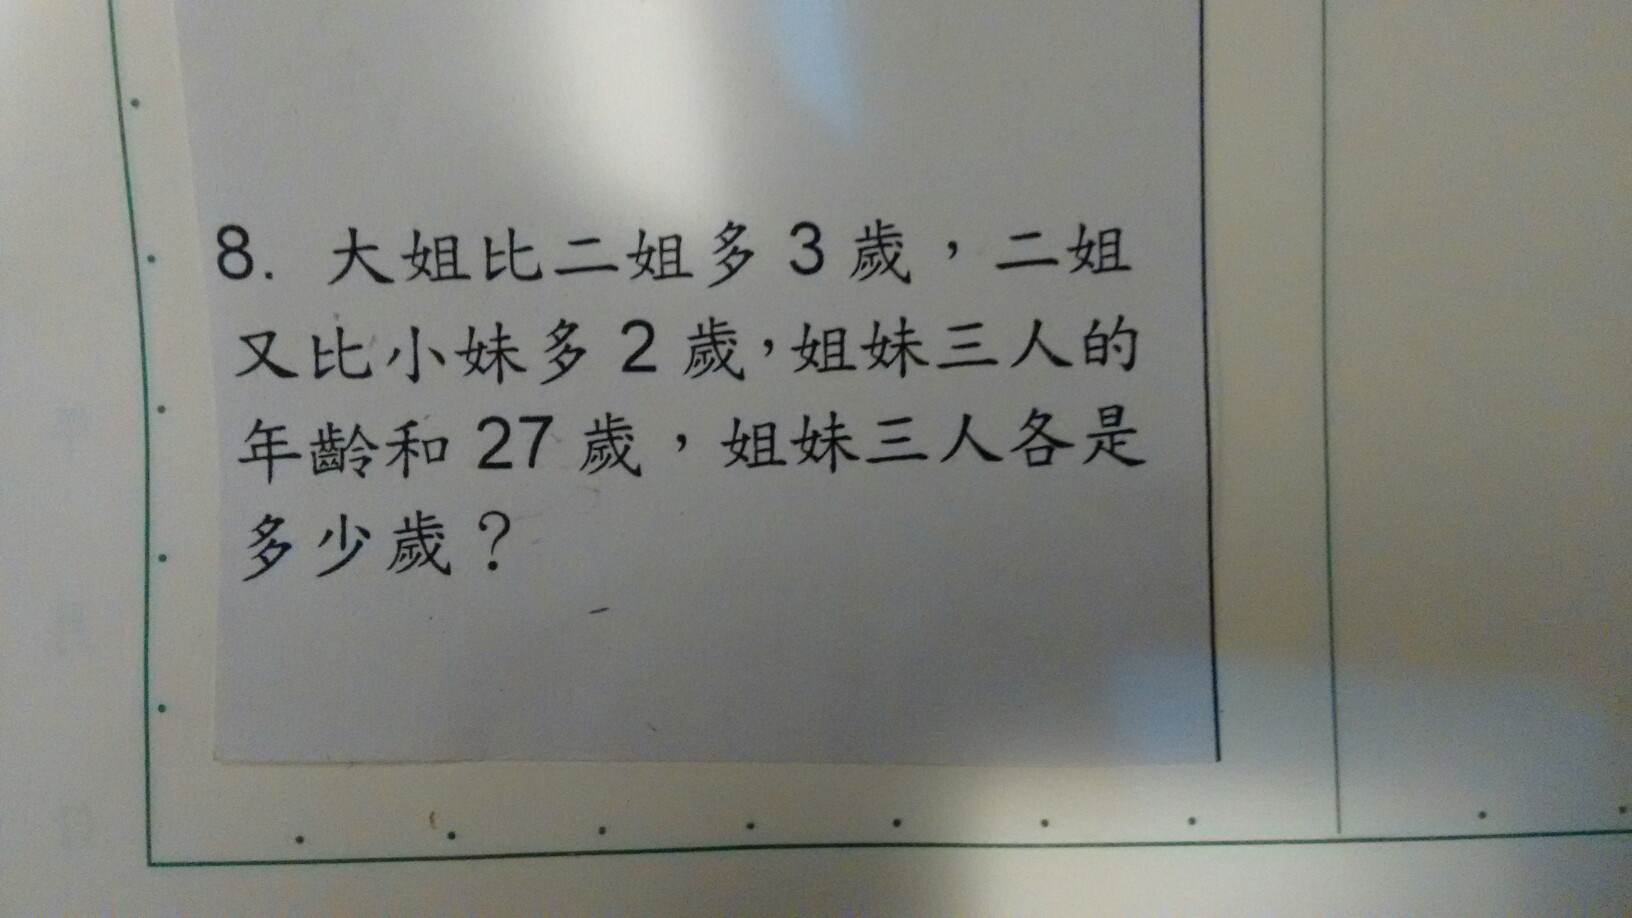 8. 大姐比二姐多 3 歲，二姐
又比小妹多 2 歲，姐妹三人的
年齡和 27 歲，姐妹三人各是
多少歲？